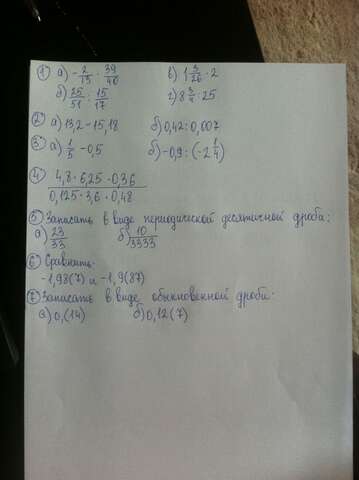 ① а) -2/13 : 39/40 в) 1 3/26 · 2
б) 25/51 : 15/17 г) 8 3/4 : 25
② а) 13,2 - 15,18 б) 0,42 : 0,007
③ а) 1/5 - 0,5 б) -0,9 : (-2 1/4)
④ 4,8 · 6,25 · 0,36
0,125 · 3,6 · 0,48
⑤ Записать в виде периодической десятичной дроби:
а) 23/33 б) 10/3333
⑥ Сравнить:
-1,98(7) и -1,9(87)
⑦ Записать в виде обыкновенной дроби:
а) 0,(14) б) 0,12(7)